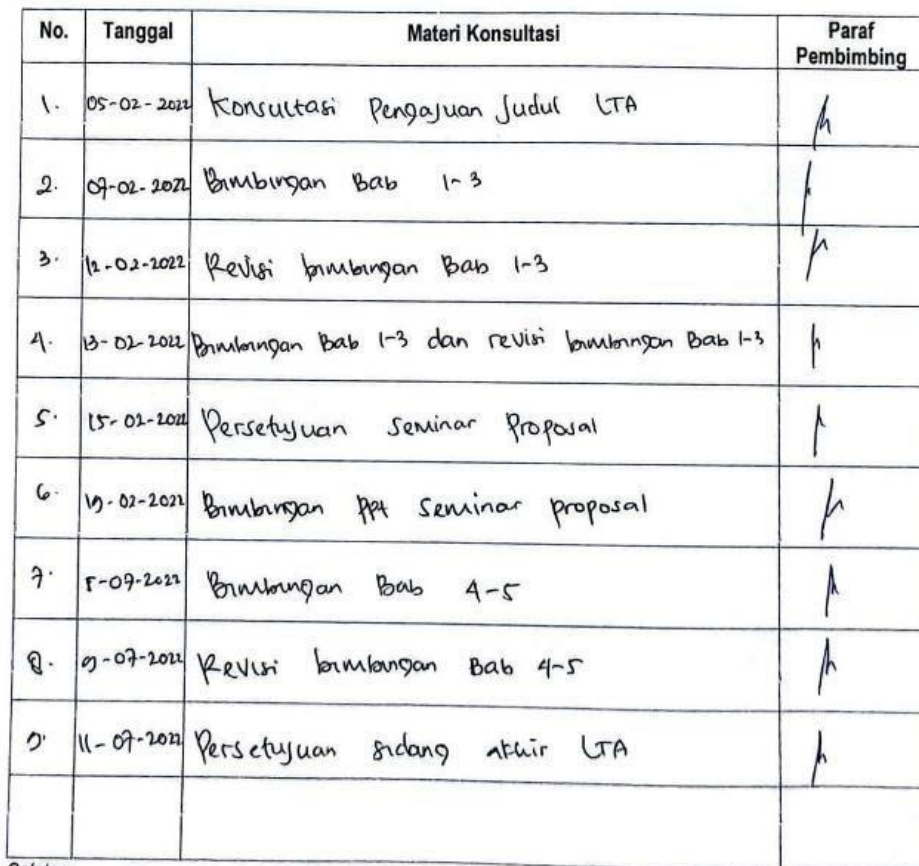 No. Tanggal Materi Konsultasi Paraf
Pembimbing
1. 05-02-2022 Konsultasi Pengajuan Judul LTA
2. 09-02-2022 Bimbingan Bab 1-3
3. 12-02-2022 Revisi bimbingan Bab 1-3
4. 13-02-2022 Bimbingan Bab 1-3 dan revisi bimbingan Bab 1-3
5. 15-02-2022 Persetujuan Seminar Proposal
6. 19-02-2022 Bimbingan ppt Seminar proposal
7. 8-07-2022 Bimbingan Bab 4-5
8. 9-07-2022 Revisi bimbingan Bab 4-5
9. 11-07-2022 Persetujuan sidang akhir LTA